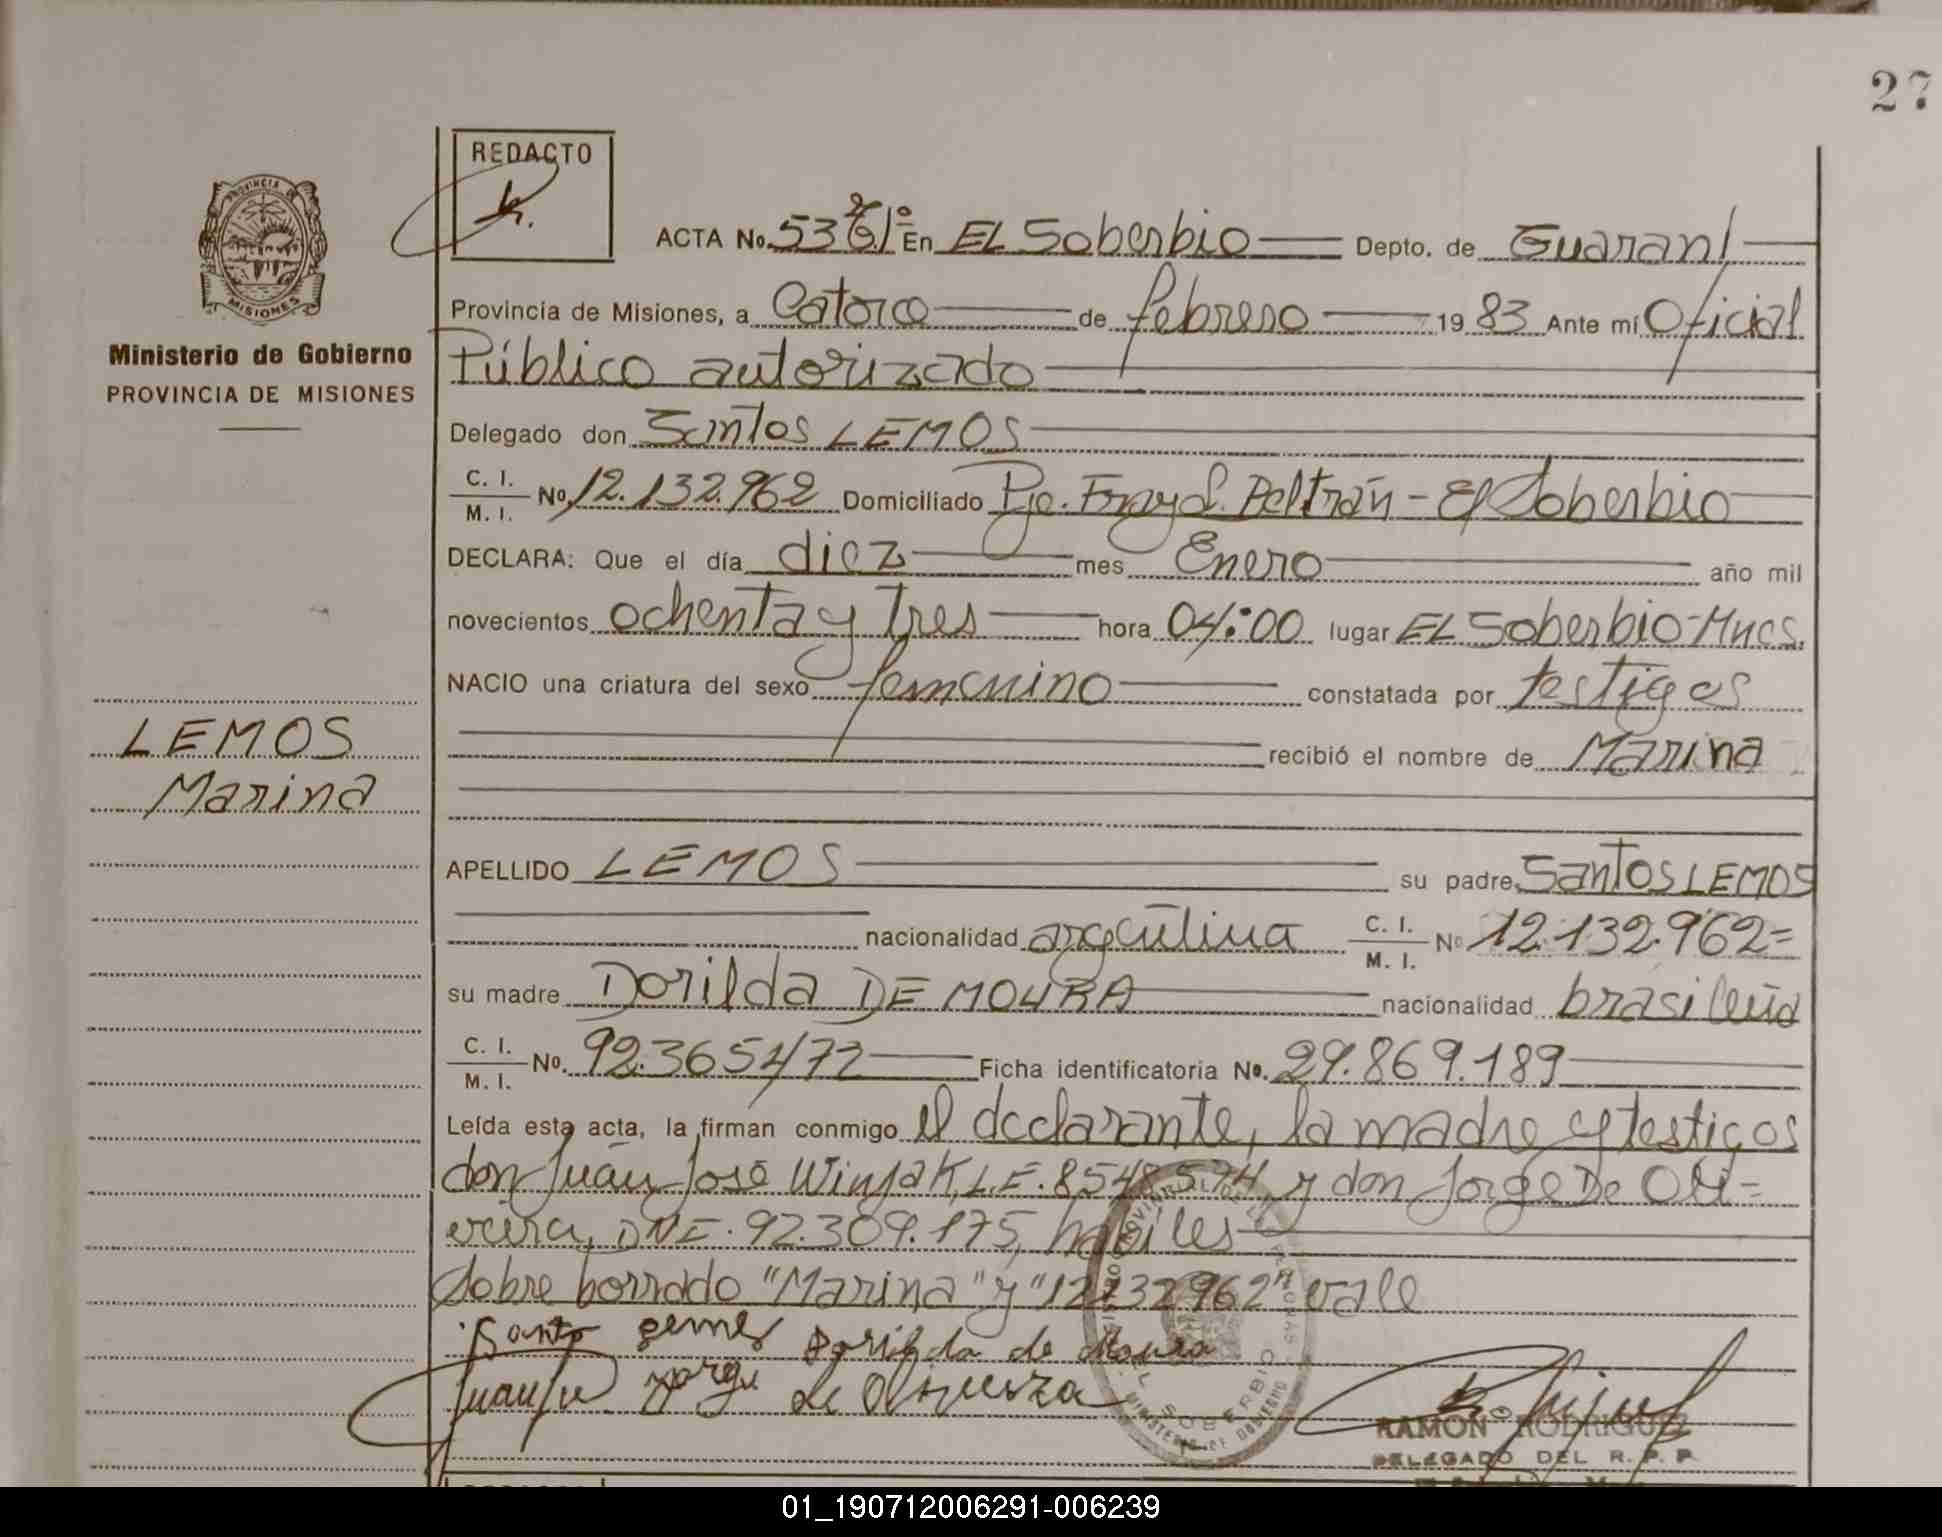 27
REDACTO
ACTA No. 53 En EL Soberbio Depto. de Guaraní
Provincia de Misiones, a Catorce de febrero 1983 Ante mí Oficial
Público autorizado
Delegado don Santos LEMOS
C. I. / M. I. No. 12.132.962 Domiciliado Pje. Fray L. Beltrán - El Soberbio
DECLARA: Que el día diez mes Enero año mil
novecientos ochenta y tres hora 04:00 lugar EL Soberbio-Mnes.
NACIO una criatura del sexo femenino constatada por testigos
recibió el nombre de Marina
APELLIDO LEMOS su padre Santos LEMOS
nacionalidad argentina C. I. / M. I. No 12.132.962=
su madre Dorilda DE MOURA nacionalidad brasileña
C. I. / M. I. No. 92.365477 Ficha identificatoria No. 29.869.189
Leída esta acta, la firman conmigo el declarante, la madre y testigos
don Juan José Winjak, L.E. 8548574 y don Jorge De Oli=
veira, DNE. 92.309.175, habiles
Sobre borrado "Marina" y "12132962" vale
Dorilda de Moura
RAMON RODRIGUEZ
DELEGADO DEL R. P. P.
EL SOBERBIO
MINISTERIO DE GOBIERNO
PROVINCIA DE
MISIONES
Ministerio de Gobierno
PROVINCIA DE MISIONES
LEMOS
Marina
01_190712006291-006239